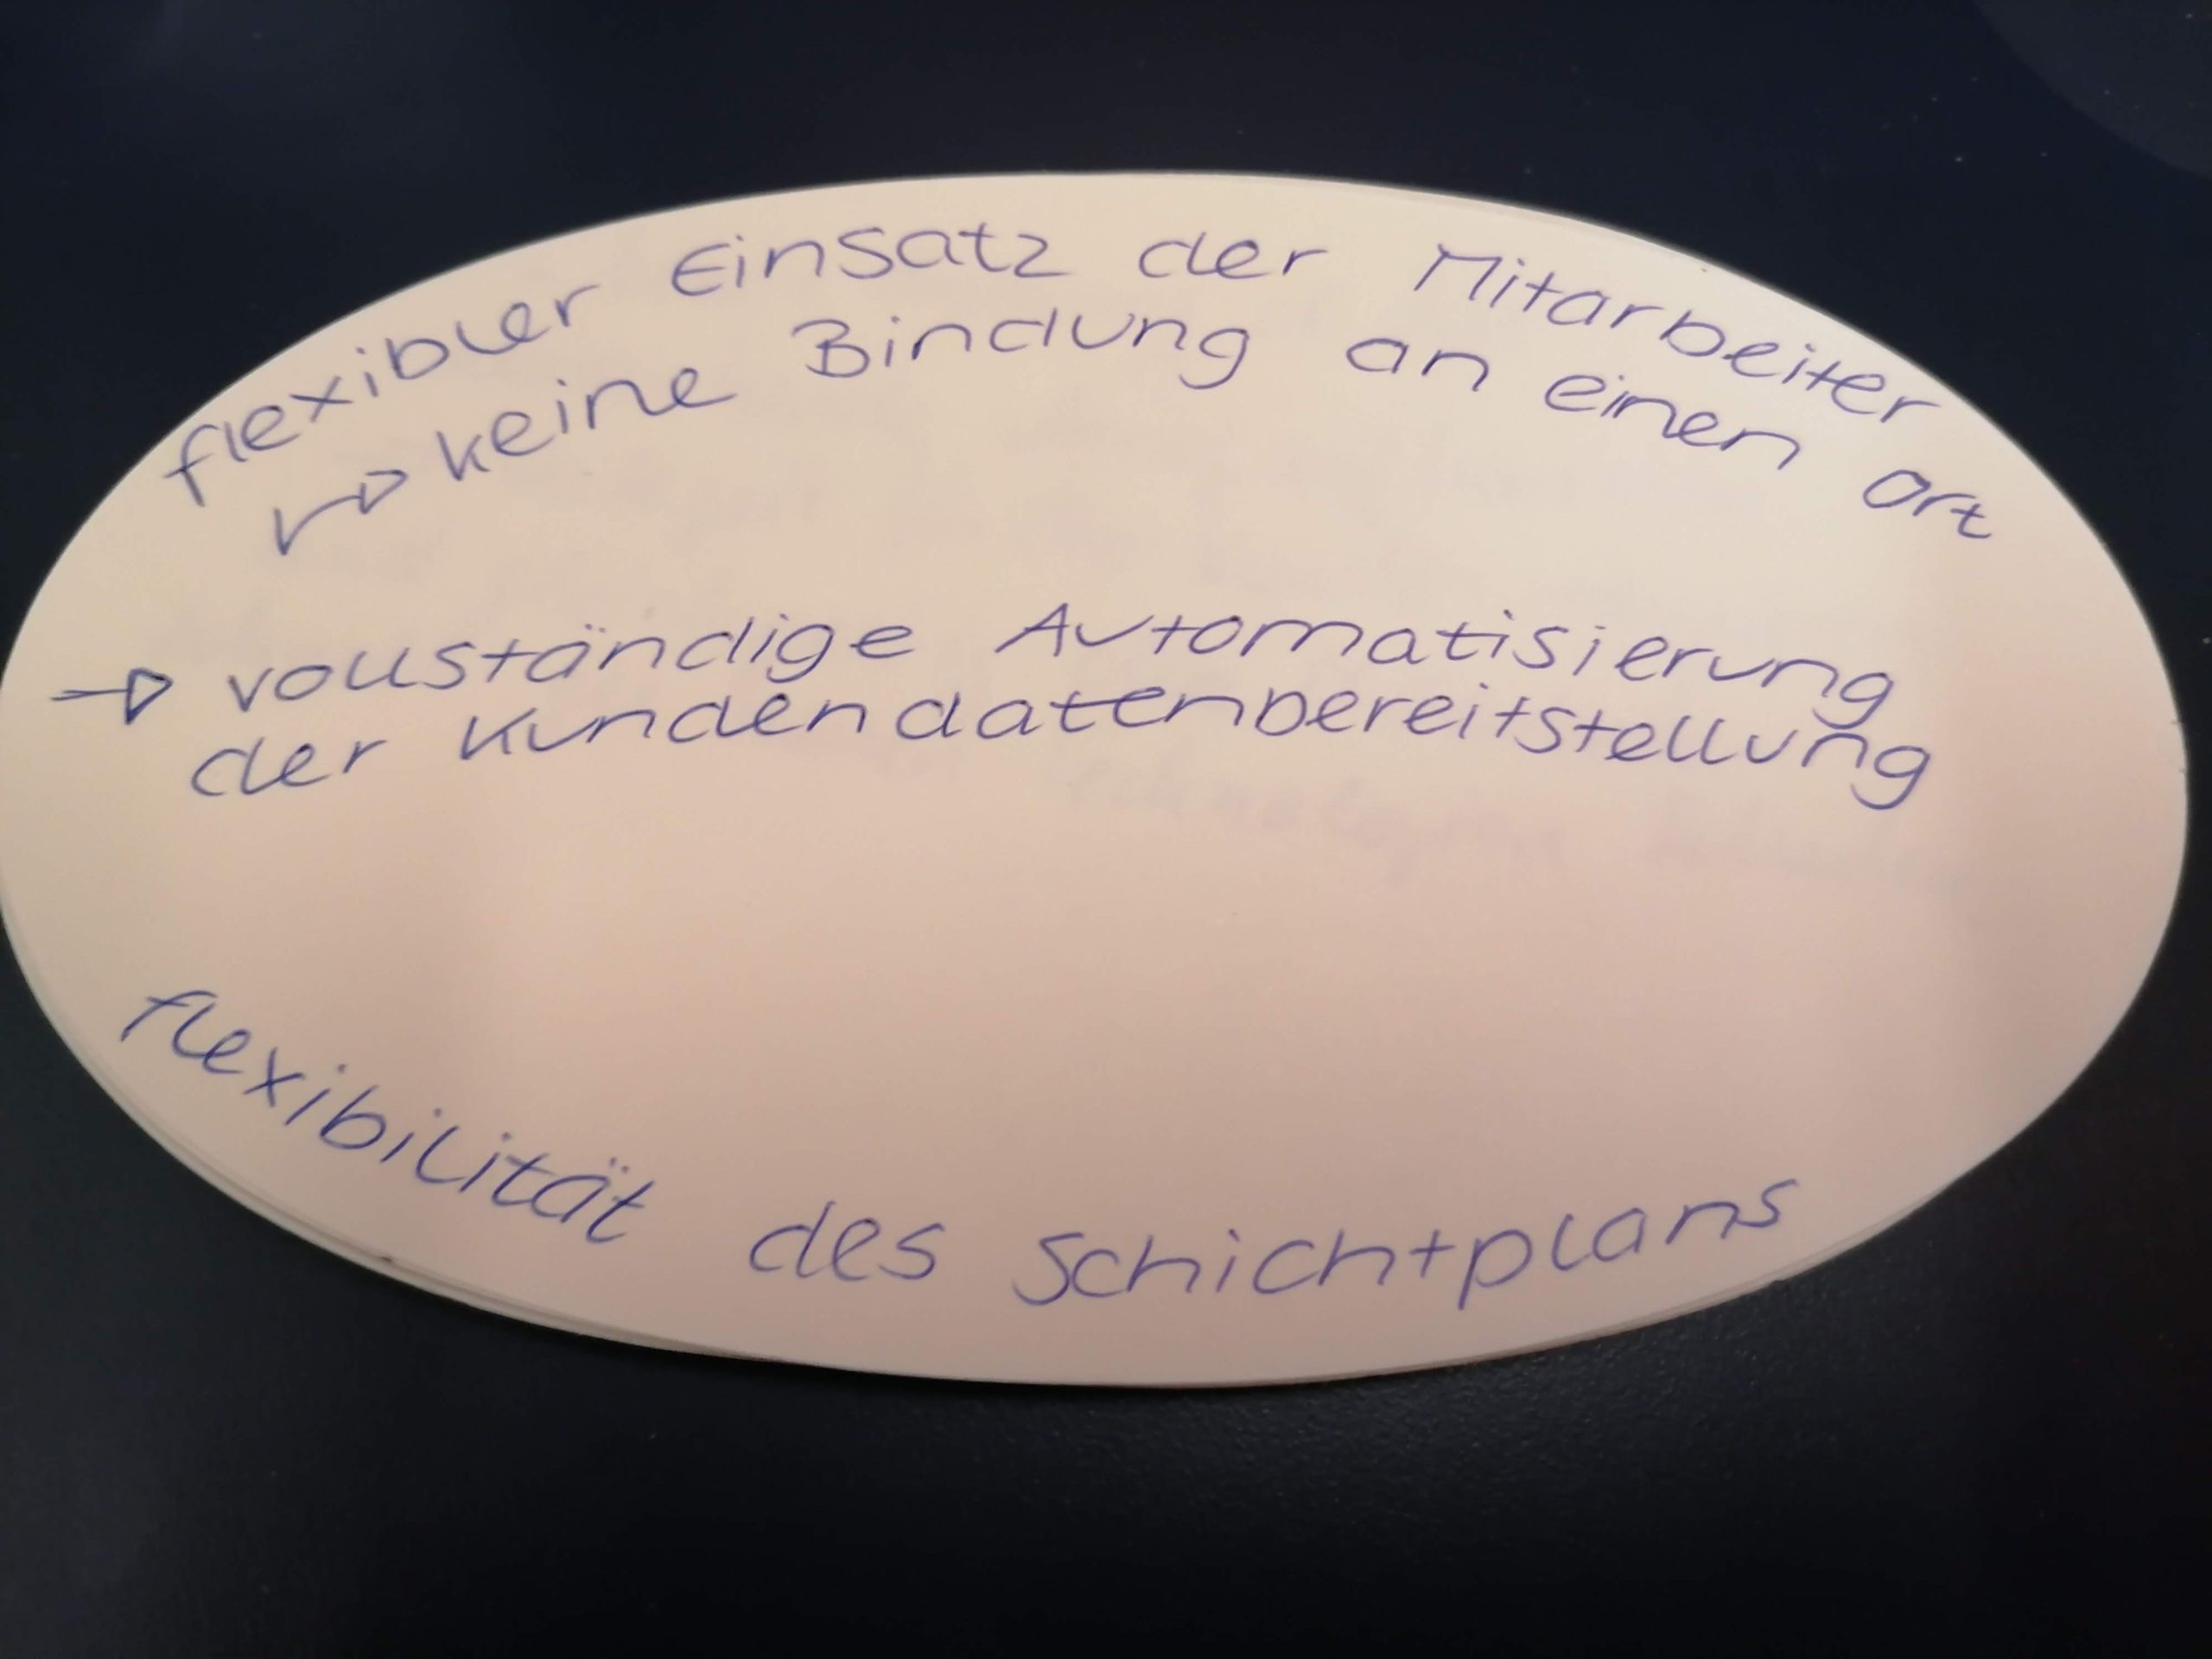 flexibler Einsatz der Mitarbeiter
↳ keine Bindung an einen Ort
→ vollständige Automatisierung
der Kundendatenbereitstellung
flexibilität des Schichtplans